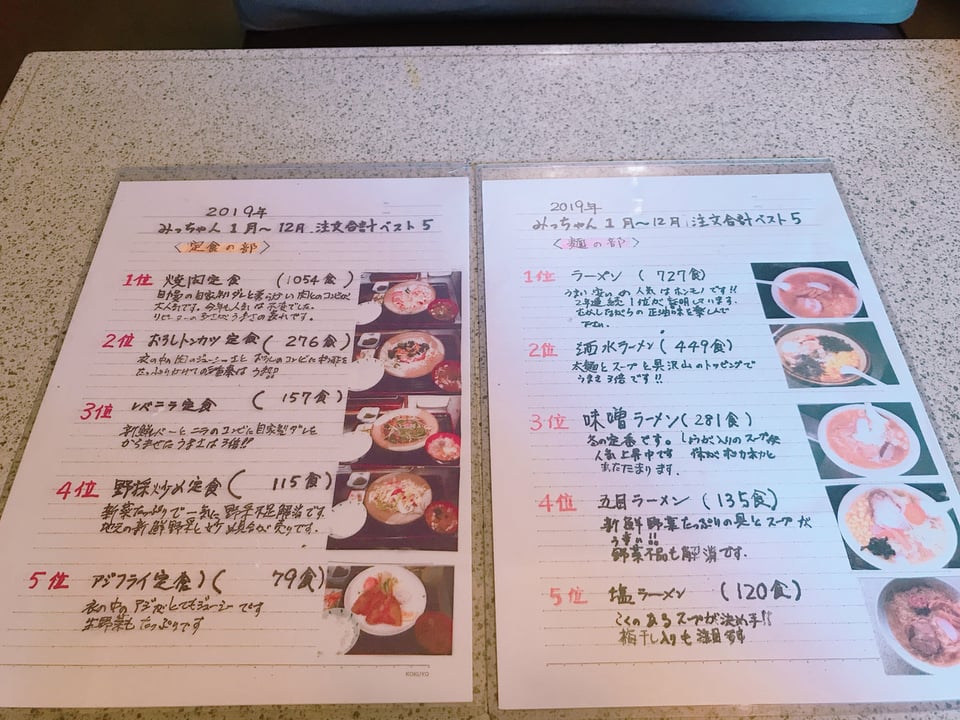 2019年
みっちゃん 1月〜12月 注文合計ベスト5
〈定食の部〉
1位 焼肉定食 (1054食)
大人気です。今年も人気は不変でした。
2位 おろしトンカツ定食 (276食)
3位 レバニラ定食 (157食)
新鮮レバーとニラのコンビに自家製ダレを
からませたうまさは3倍!!
4位 野採炒め定食 (115食)
新菜たっぷりで一気に野平不足解消です。
地元の新鮮野菜と炒め具合が売りです。
5位 アジフライ定食 (79食)
衣の中のアジがとてもジューシーです
生野菜もたっぷりです
KOKUYO
2019年
みっちゃん 1月〜12月 注文合計ベスト5
〈麺の部〉
1位 ラーメン (727食)
の人気はホンモノです!!
2年連続1位が証明しています。
むかしながらの正油味を楽しんで
下さい。
2位 酒水ラーメン (449食)
太麺とスープと具沢山のトッピングで
うまさ3倍です!!
3位 味噌ラーメン (281食)
冬の定番です。しょうが入りのスープが
人気上昇中です 体がポカポカと
あたたまります。
4位 五目ラーメン (135食)
新鮮野菜たっぷりの具とスープが
うまい!!
野菜不足も解消です。
5位 塩ラーメン (120食)
こくのあるスープが決め手!!
梅干し入りも注目です